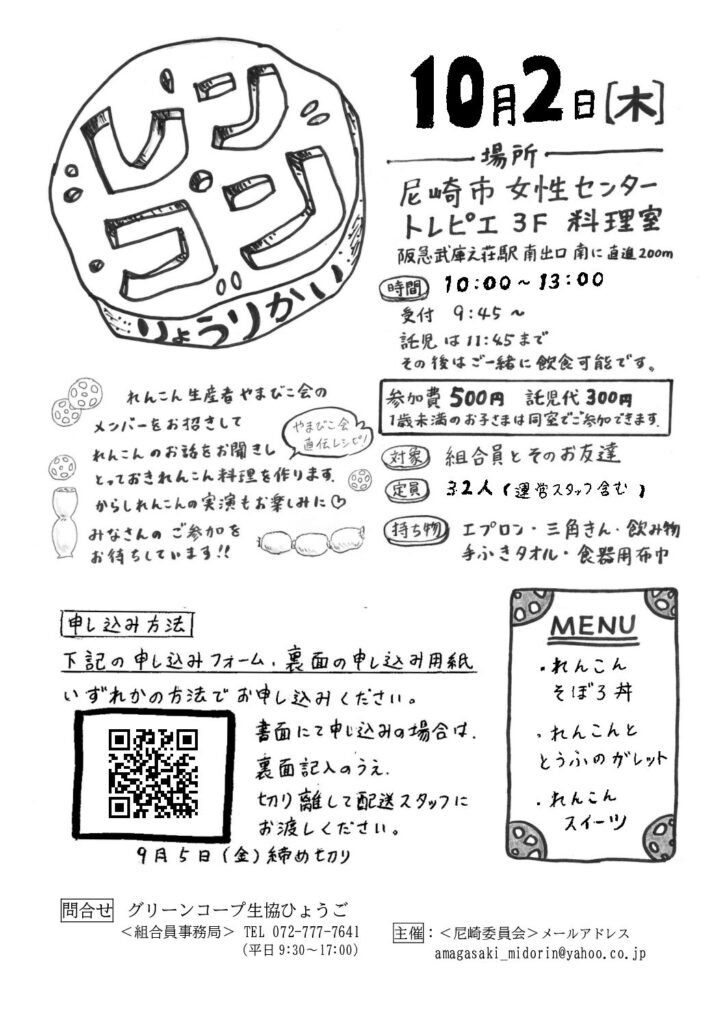 レンコン
りょうりかい
10月2日[木]
場所
尼崎市 女性センター
トレピエ 3F 料理室
阪急武庫之荘駅 南出口 南に直進200m
時間 10:00～13:00
受付 9:45～
託児は11:45まで
その後はご一緒に飲食可能です。
参加費 500円 託児代 300円
1歳未満のお子さまは同室でご参加できます.
対象 組合員とそのお友達
定員 32人(運営スタッフ含む)
持ち物 エプロン・三角きん・飲み物
手ふきタオル・食器用布巾
れんこん生産者やまびこ会の
メンバーをお招きして
れんこんのお話をお聞きし
とっておきれんこん料理を作ります.
からしれんこんの実演もお楽しみに♡
みなさんのご参加を
お待ちしています!!
やまびこ会
直伝レシピ!
申し込み方法
下記の申し込みフォーム、裏面の申し込み用紙
いずれかの方法でお申し込みください。
書面にて申し込みの場合は、
裏面記入のうえ、
切り離して配送スタッフに
お渡しください。
9月5日(金)締め切り
MENU
・れんこん
そぼろ丼
・れんこんと
とうふのガレット
・れんこん
スイーツ
問合せ グリーンコープ生協ひょうご
＜組合員事務局＞ TEL 072-777-7641
(平日9:30～17:00)
主催：＜尼崎委員会＞メールアドレス
amagasaki_midorin@yahoo.co.jp